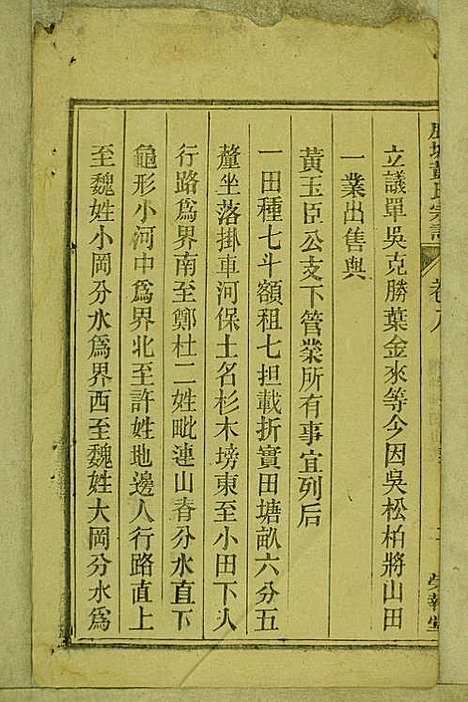 黃氏宗譜
卷八
榮親堂
立議單吳克勝葉金來等今因吳松柏將山田
一業出售與
黃玉臣公支下管業所有事宜列后
一田種七斗額租七担載折實田塘畝六分五
釐坐落掛車河保土名杉木塝東至小田下人
行路爲界南至鄭杜二姓毗連山脊分水直下
龜形小河中爲界北至許姓地邊人行路直上
至魏姓小岡分水爲界西至魏姓大岡分水爲